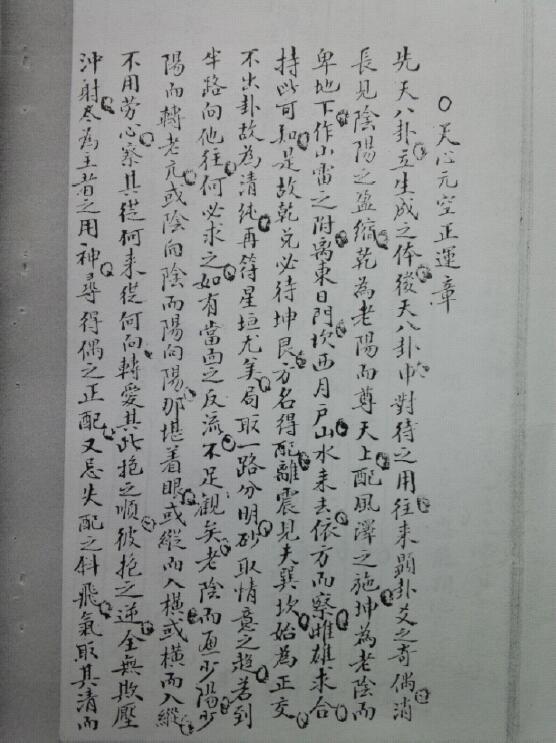 ○天心元空正運章
先天八卦立生成之体後天八卦中對待之用往来顕卦爻之奇偶消
長見陰陽之盈縮乾為老陽而尊天上配風澤之施坤為老陰而
卑地下作山雷之附离東日門坎西月戸山水来去依方而察雌雄求合
持此可知是故乾兑必待坤艮方名得配離震見夫巽坎始為正交
不出卦故為清純再符星垣尤美局取一路分明砂取情意之趋若到
半路向他往何必求之如有當面之反流不足觀矣老陰而直少陽少
陽而轉老亢或陰向陰而陽向陽那堪着眼或縱而入橫或橫而入縱
不用劳心察其從何来從何向轉愛其此抱之順彼抱之逆全無欺壓
沖射尽為主者之用神尋得偶之正配又忌失配之斜飛氣取其清而